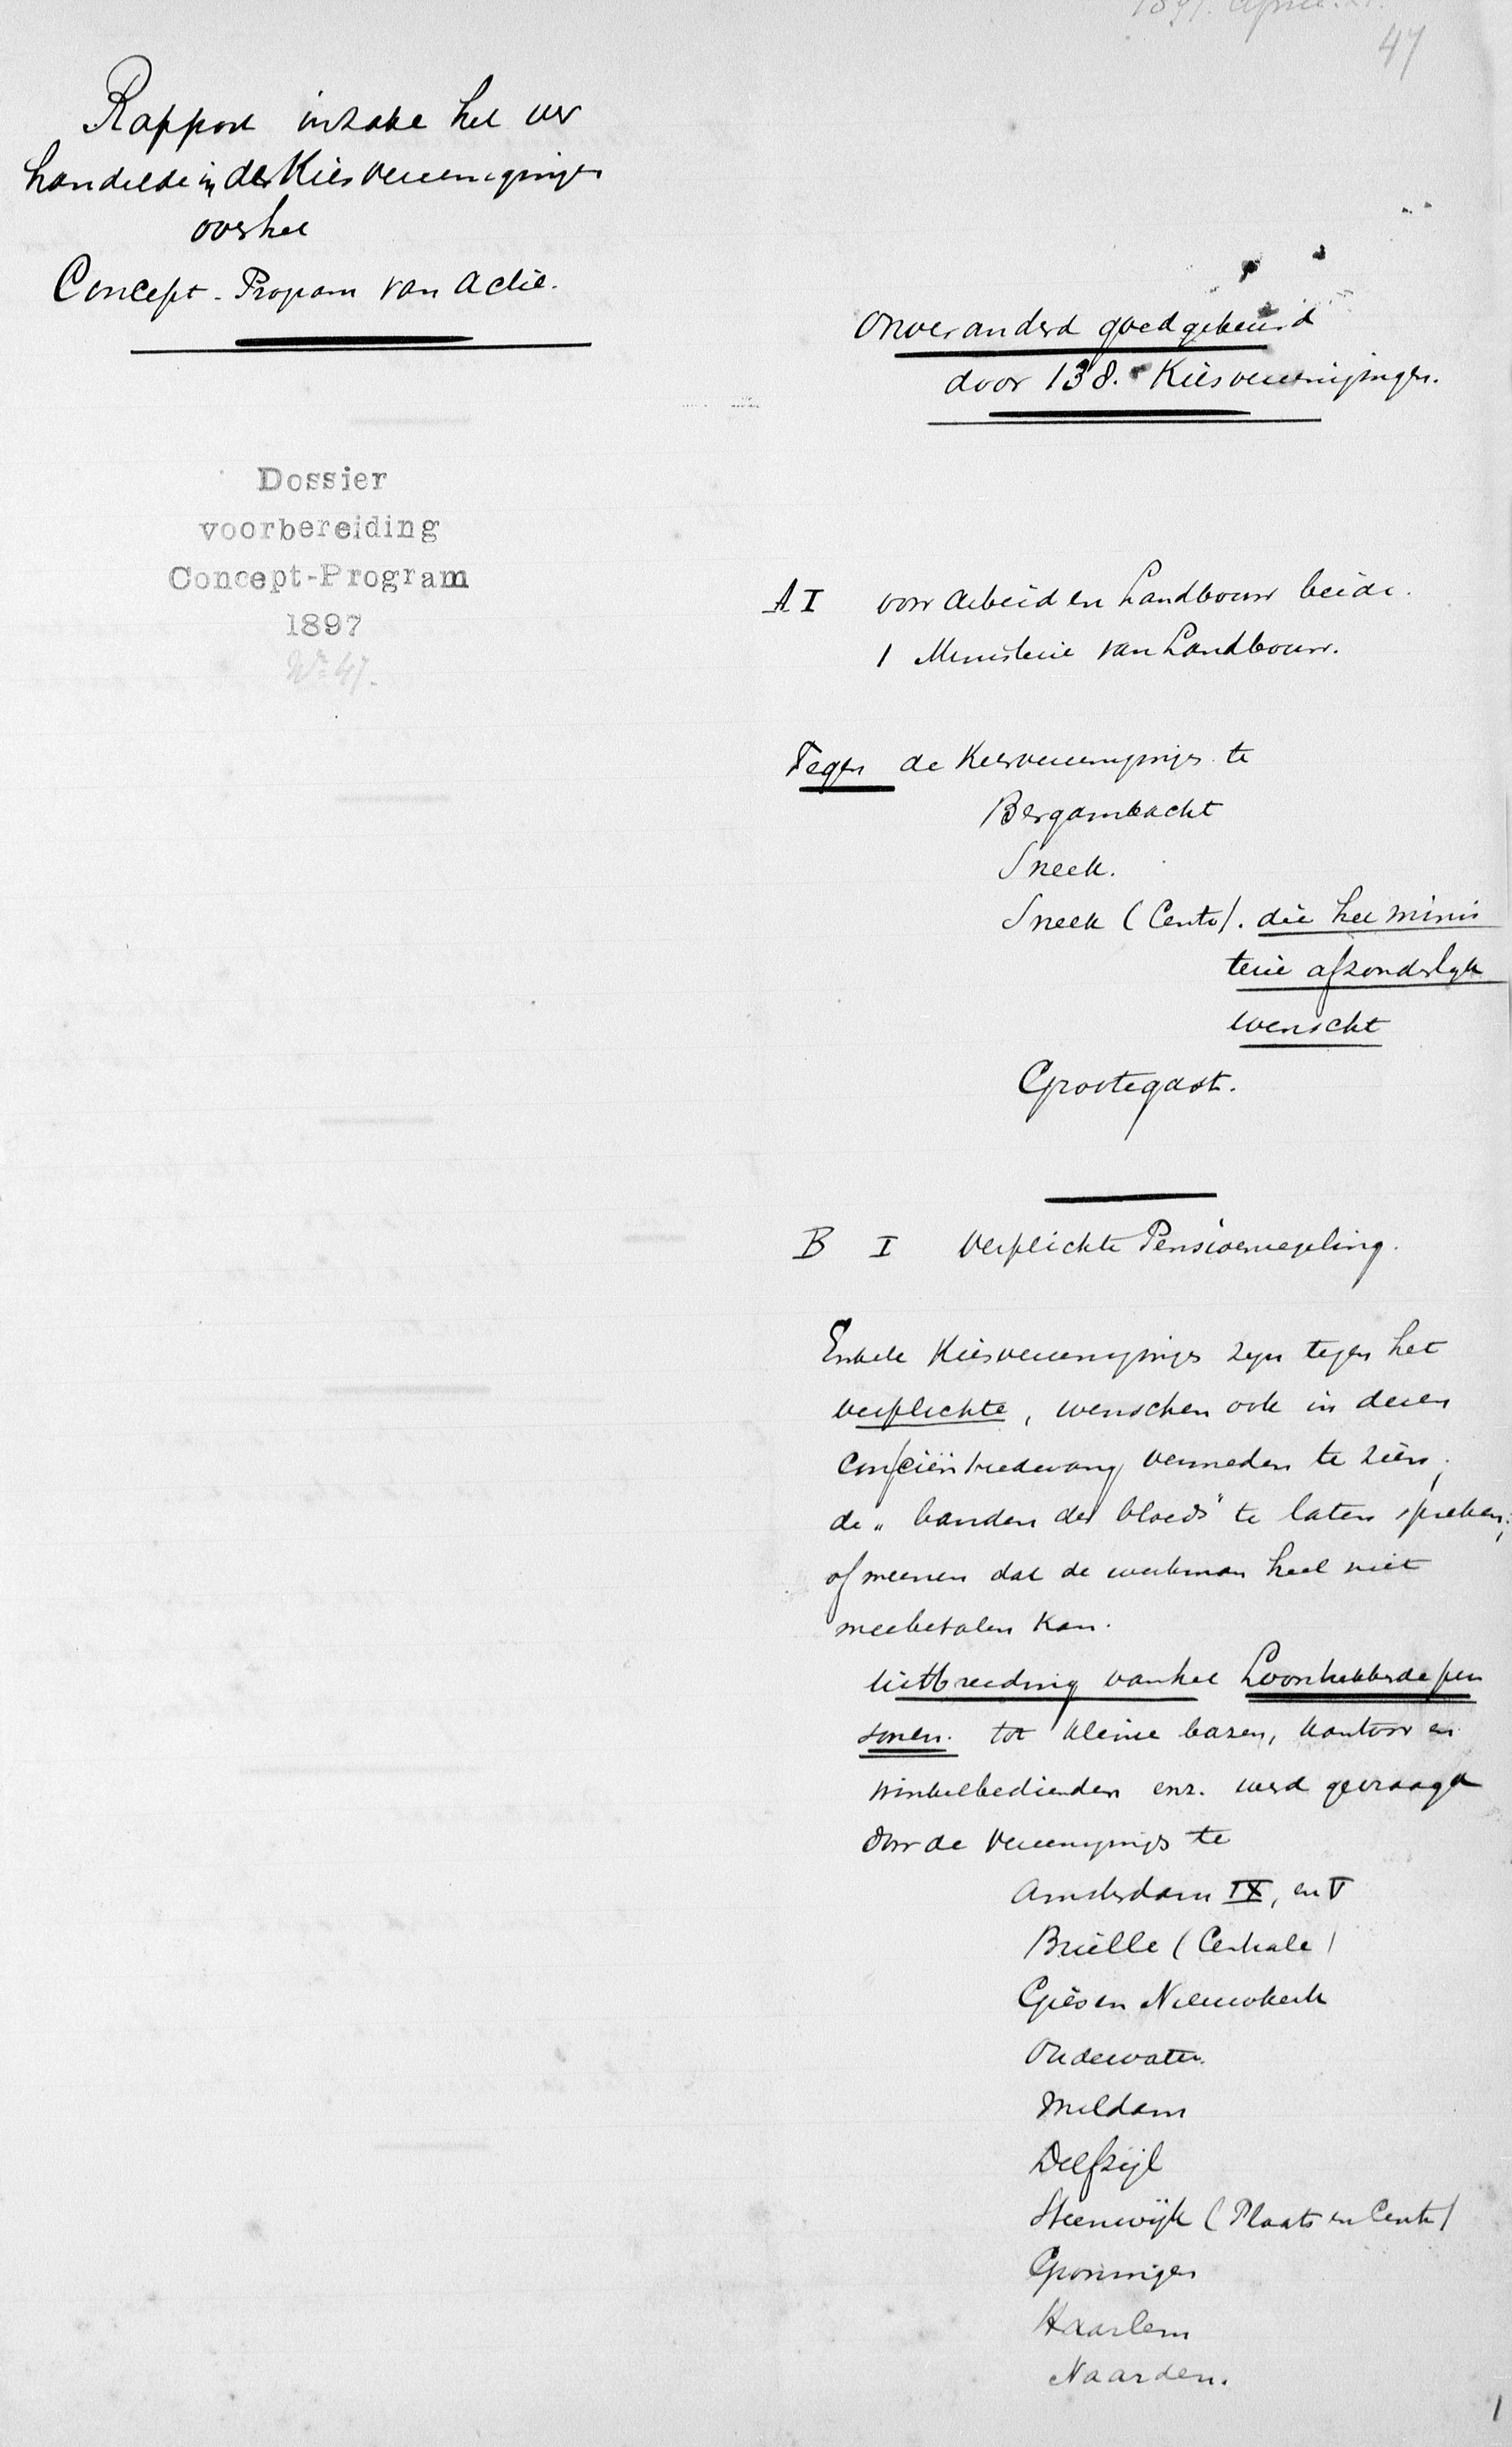 47
Rapport inzake het ver
handelde in de Kiesvereenigingen
over het
Concept-Program van Actie.
Dossier
voorbereiding
Concept-Program
1897
No. 47.
Onveranderd goedgekeurd
door 138. Kiesvereenigingen.
A I voor Arbeid en Landbouw beide.
1 Ministerie van Landbouw.
Tegen de Kiesvereenigingen te
Bergambacht
Sneek.
Sneek (Centr). die het minis
terie afzonderlijk
wenscht
Grootegast.
B I Verplichte Pensioenregeling.
Enkele Kiesvereenigingen zijn tegen het
verplichte, wenschen ook in dezen
consciëntiedwang vermeden te zien;
de „banden des bloeds" te laten spreken;
of meenen dat de werkman heel niet
meebetalen kan.
Uitbreiding van het Loonhebbende per
sonen. tot kleine bazen, kantoor en
winkelbedienden enz. werd gevraagd
door de Vereenigings te
Amsterdam IX, en V
Brielle (Centrale)
Giesen Nieuwkerk
Oudewater.
Mildam
Delfzijl
Steenwijk (Plaats en Centr)
Groningen
Haarlem
Naarden.
1